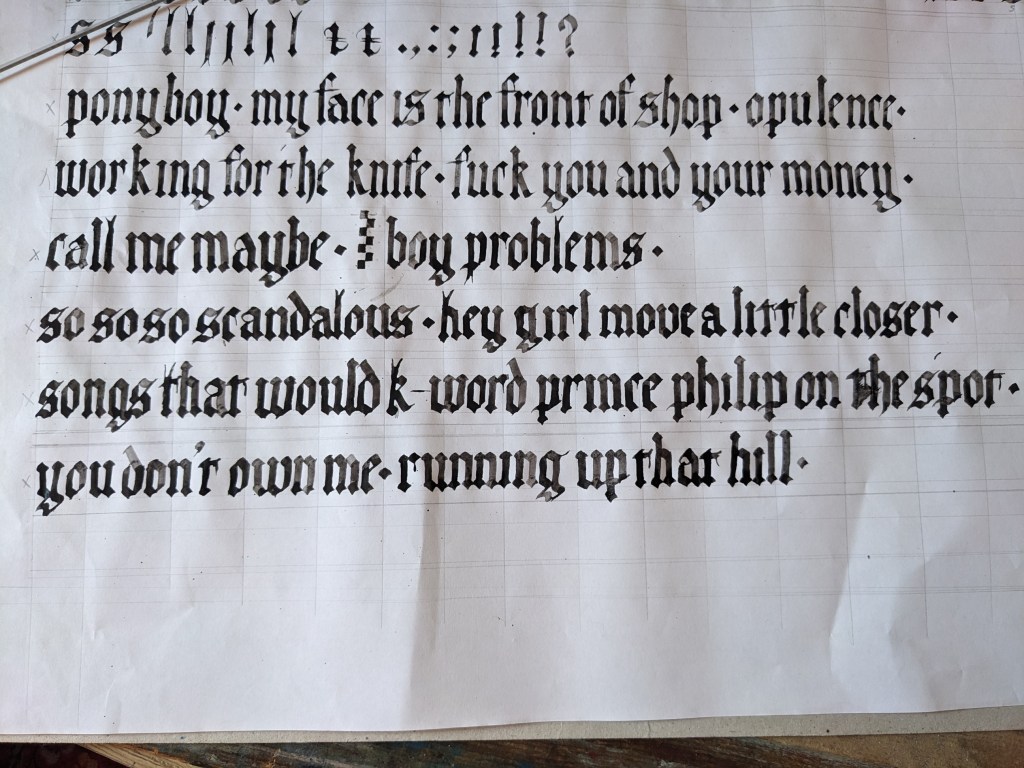 ss .,:; !! ?
ponyboy · my face is the front of shop · opulence ·
working for the knife · fuck you and your money ·
call me maybe · boy problems ·
so so so scandalous · hey girl move a little closer ·
songs that would k-word prince philip on the spot ·
you don't own me · running up that hill ·